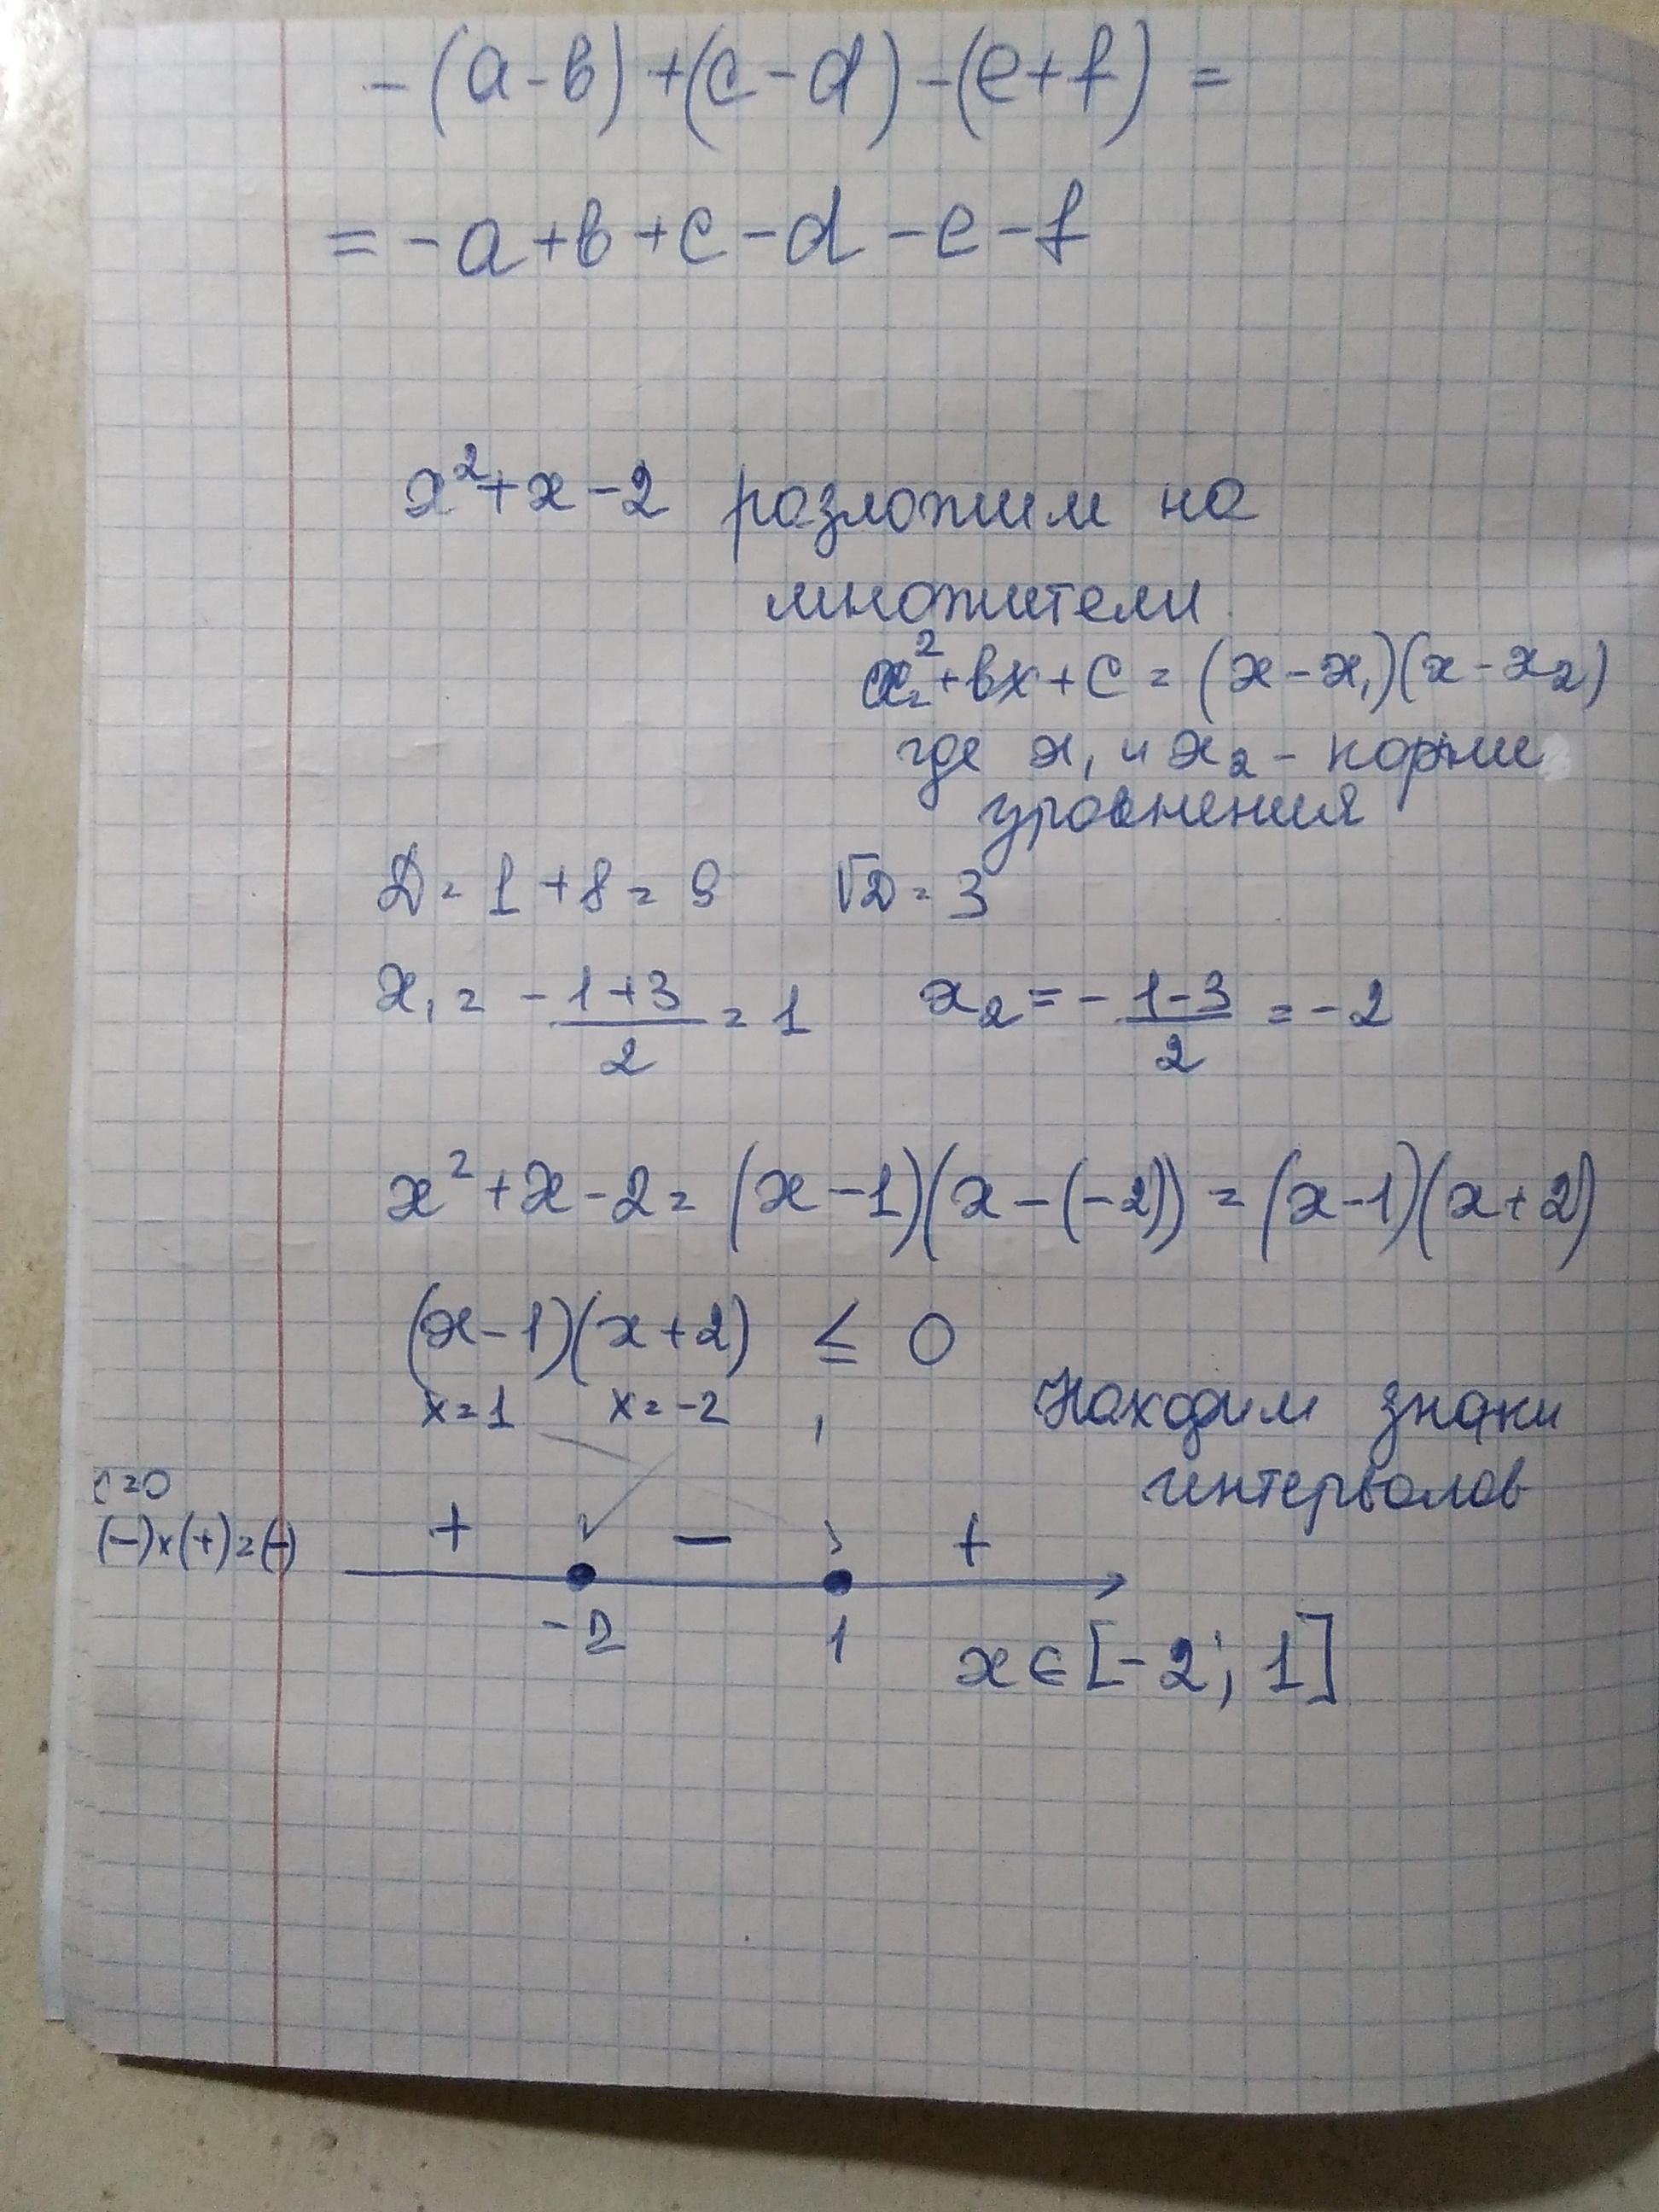 -(a-b)+(c-d)-(e+f)=
=-a+b+c-d-e-f
x²+x-2 разложим на
множители
x²+bx+c=(x-x₁)(x-x₂)
где x₁ и x₂ - корни
уравнения
D=1+8=9 √D=3
x₁=-1+3/2=1 x₂=-1-3/2=-2
x²+x-2=(x-1)(x-(-2))=(x-1)(x+2)
(x-1)(x+2)≤0
x=1 x=-2
Находим знаки
интервалов
=0
(-)×(+)=(-)
+ - +
-2 1
x∈[-2; 1]